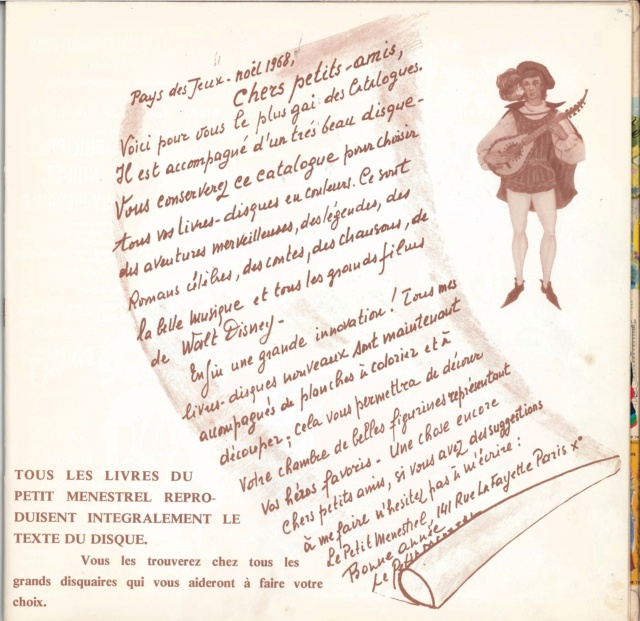 Pays des Jeux - noël 1968,
Chers petits-amis,
Voici pour vous le plus gai des Catalogues.
Il est accompagné d'un très beau disque -
Vous conserverez ce catalogue pour choisir
tous vos livres-disques en couleurs. Ce sont
des aventures merveilleuses, des légendes, des
Romans célèbres, des contes, des chansons, de
la belle musique et tous les grands films
de Walt Disney -
Enfin une grande innovation ! Tous mes
livres-disques nouveaux sont maintenant
accompagnés de planches à colorier et à
découper ; cela vous permettra de décorer
votre chambre de belles figurines représentant
vos héros favoris - Une chose encore
Chers petits amis, si vous avez des suggestions
à me faire n'hésitez pas à m'écrire :
Le Petit Menestrel 141 Rue Lafayette Paris Xe
Bonne année
Le Petit Menestrel
TOUS LES LIVRES DU
PETIT MENESTREL REPRO-
DUISENT INTEGRALEMENT LE
TEXTE DU DISQUE.
Vous les trouverez chez tous les
grands disquaires qui vous aideront à faire votre
choix.